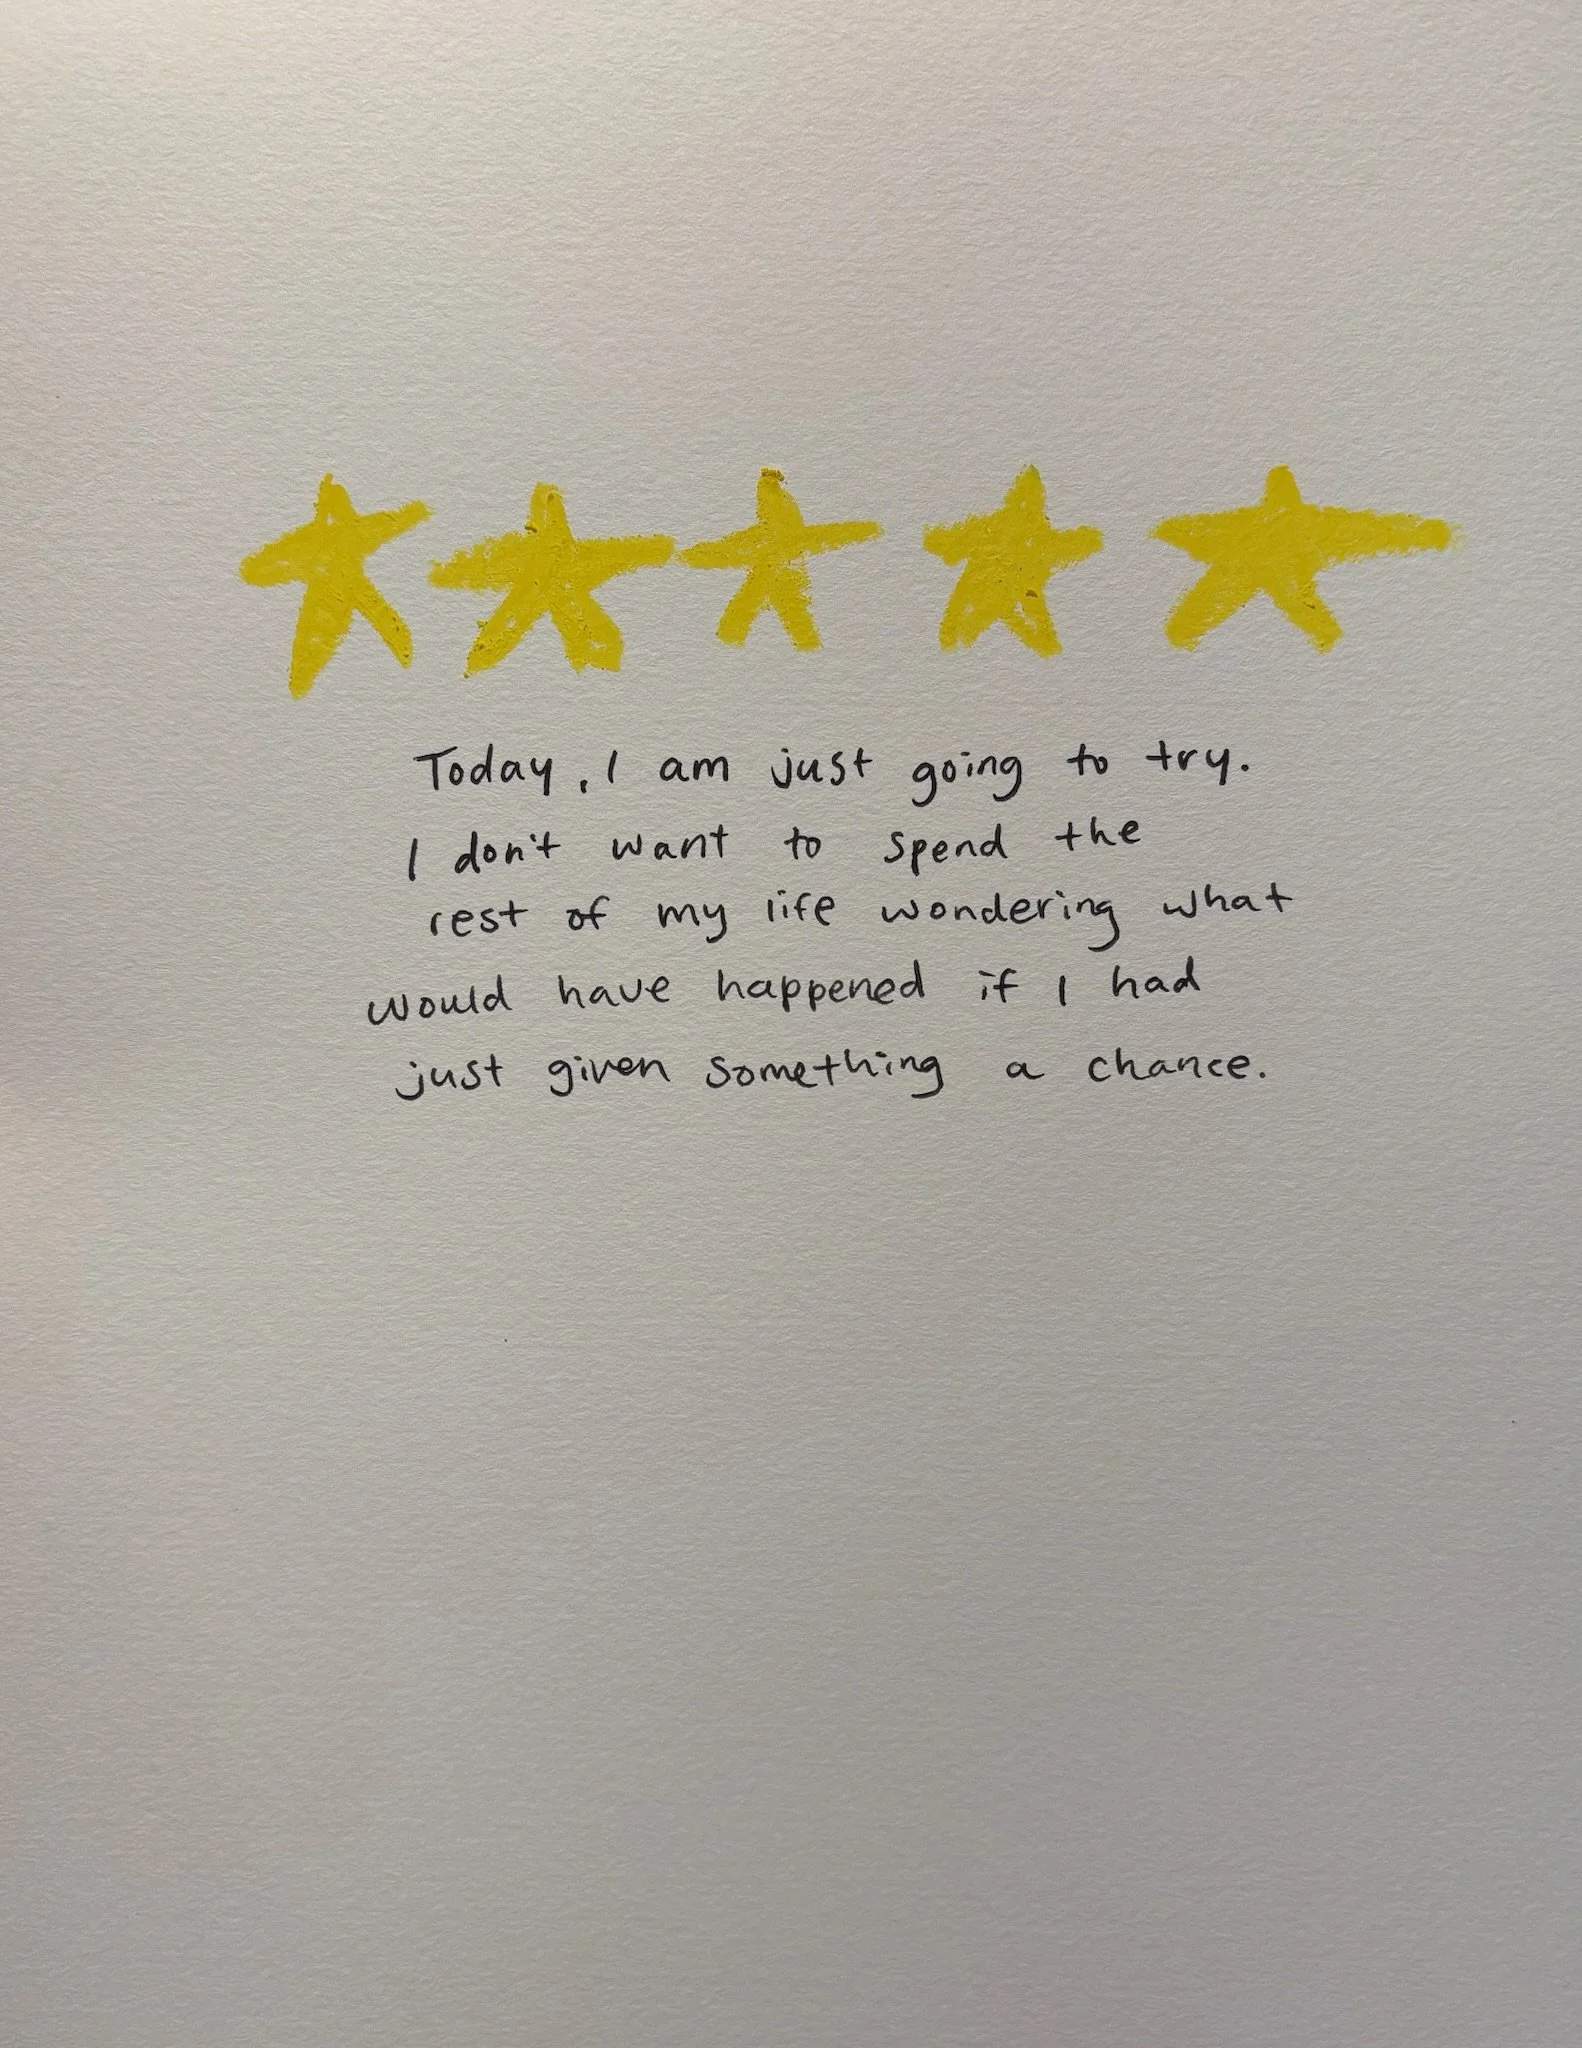 Today, I am just going to try.
I don't want to spend the
rest of my life wondering what
would have happened if I had
just given something a chance.